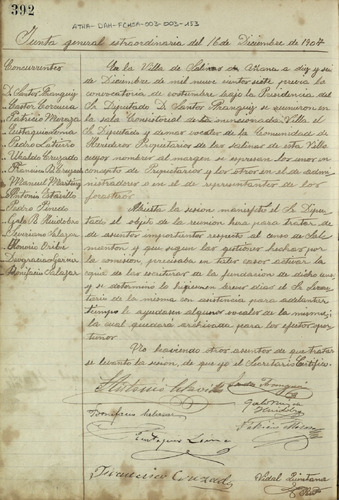 392
ATHA-DAH-FCHSA-003-003-153
Junta general extraordinaria del 16 de Diciembre de 1907
Concurrentes
D. Santos Aranguiz
Gastor Corcuera
Patricio Moraza
Eustaquio Loma
Pedro Latorre
Ubaldo Cruzado
Manuel Martinez
Antonio
Pedro Pinedo
Galo B. Huidobro
Feliciano Salazar
Honorio Uribe
Deogracias
Bonifacio Salazar
En la Villa de Salinas de Añana a diez y seis
de Diciembre de mil nueve cientos siete previa la
convocatoria de costumbre bajo la Presidencia del
Sr Diputado D. Santos Aranguiz se reunieron en
la sala Consistorial de la mencionada Villa el
Sr Diputado y demas vocales de la Comunidad de
Herederos Propietarios de las salinas de esta Villa
cuyos nombres al margen se espresan los unos en
concepto de Propietarios y los otros en el de admi-
nistradores en el de representantes de los
forasteros
Abierta la sesion manifestó el Sr Dipu-
tado el objeto de la reunion hera para tratar de
de asuntos importantes respecto al censo de Sal
y que segun las gestiones hechas por
la comision precisaba en todos casos activar la
copia de las escrituras de la fundacion de dicho
y se determinó la en breves dias el Sr Secre-
tario de la misma con asistencia para adelantar
tiempo le ayudasen algunos vocales de la misma;
la cual quedará archivada para los efectos
No haviendo otros asuntos de que tratar
se levantó la sesion, de que yo el Secretario Certifico.
Antonio
Santos Aranguiz
Bonifacio Salazar
Galo
Huidobro
Eustaquio Loma
Patricio Moraza
Francisco Cruzado
Vidal Quintana